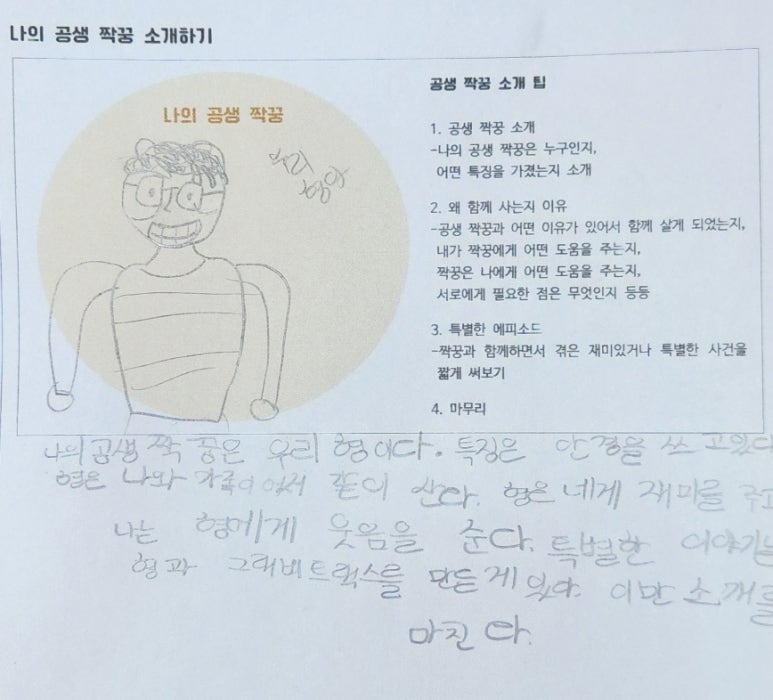 나의 공생 짝꿍 소개하기
나의 공생 짝꿍
우리
형아
공생 짝꿍 소개 팁
1. 공생 짝꿍 소개
-나의 공생 짝꿍은 누구인지,
어떤 특징을 가졌는지 소개
2. 왜 함께 사는지 이유
-공생 짝꿍과 어떤 이유가 있어서 함께 살게 되었는지,
내가 짝꿍에게 어떤 도움을 주는지,
짝꿍은 나에게 어떤 도움을 주는지,
서로에게 필요한 점은 무엇인지 등등
3. 특별한 에피소드
-짝꿍과 함께하면서 겪은 재미있거나 특별한 사건을
짧게 써보기
4. 마무리
나의 공생 짝꿍은 우리 형이다. 특징은 안경을 쓰고있다
형은 나와 가족이어서 같이 산다. 형은 네게 재미를 주고
나는 형에게 웃음을 준다. 특별한 이야기는
형과 그래비트랙스를 만든게 있다. 이만 소개를
마친다.